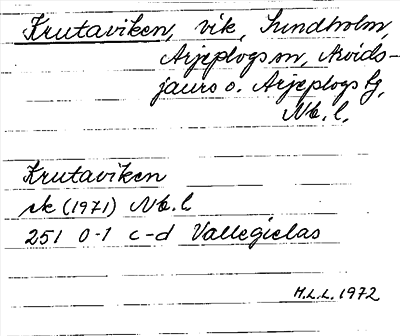 Krutaviken, vik, Sundholm,
Arjeplogs sn, Arvids-
jaurs o. Arjeplogs lg,
Nb. l.
Krutaviken
ek (1971) Nb. l.
251 0-1 c-d Vallegielas
M.L.L. 1972